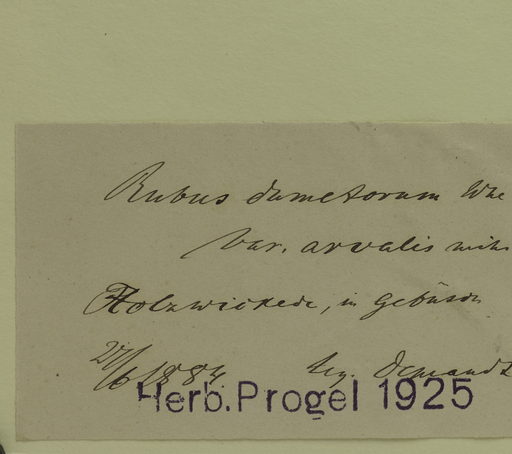 Rubus dumetorum Whe
var. arvalis mihi
Holzwickede, in Gebüsch
/6 1884. leg. Demandt
Herb. Progel 1925